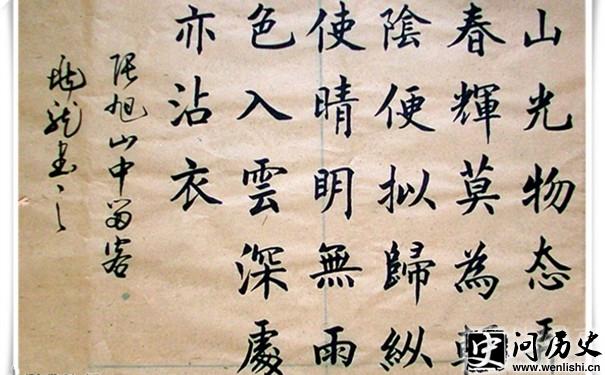 山光物态弄
春輝莫為輕
陰便拟歸縱
使晴明無雨
色入雲深處
亦沾衣
張旭山中留客
龍書
问历史
www.wenlishi.cn